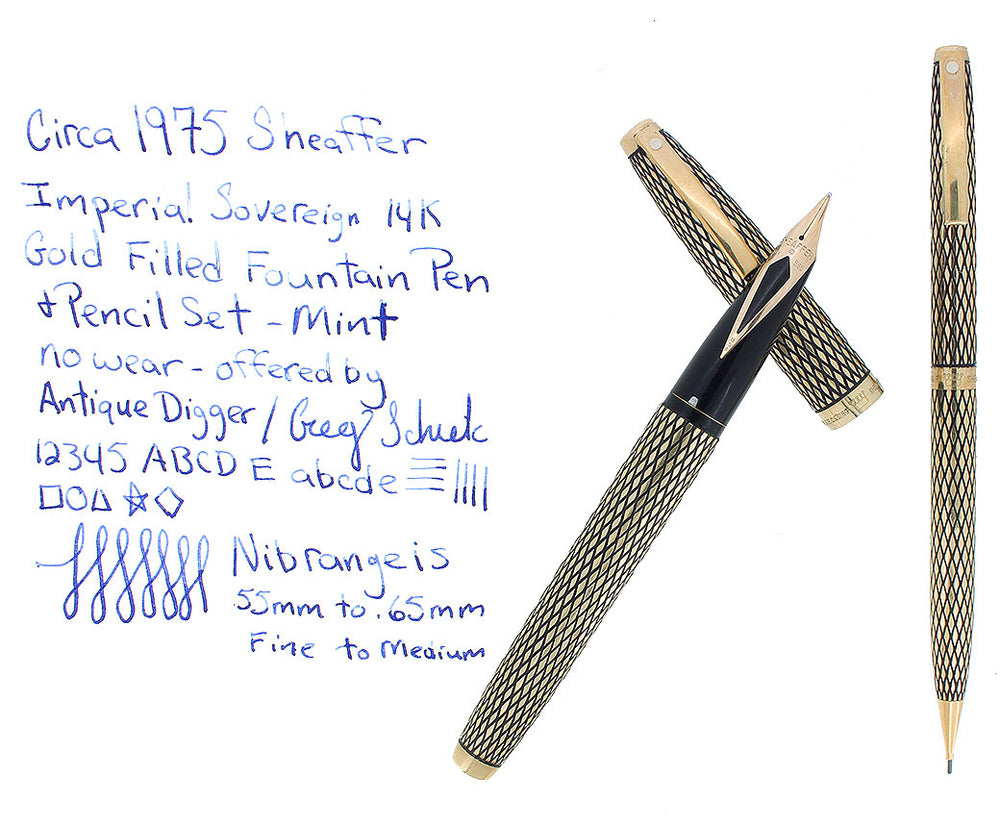 Circa 1975 Sheaffer
Imperial Sovereign 14K
Gold Filled Fountain Pen
+ Pencil Set - Mint
no wear - offered by
Antique Digger / Greg
12345 ABCD E abcde
Nib range is
.55mm to .65mm
Fine to Medium
SHEAFFER